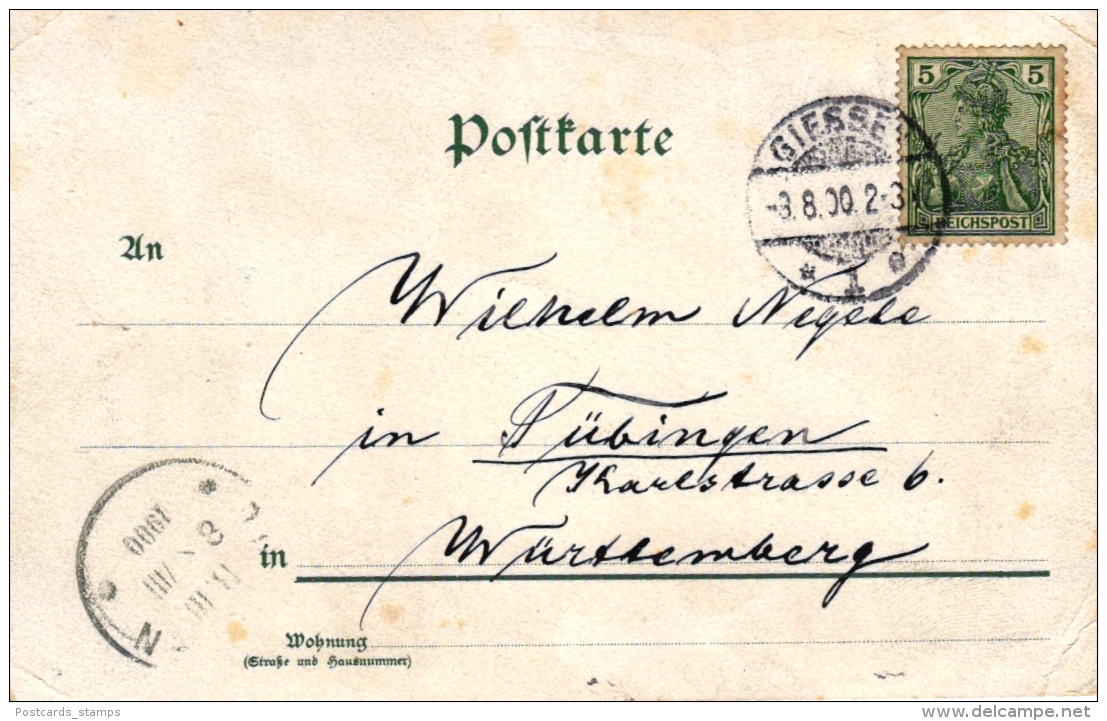 Postkarte
5 5
REICHSPOST
GIESSEN
-3.8.00.2-3
* 1 e
An
Wilhelm Negele
in Tübingen
Karlstrasse 6.
in Württemberg
Wohnung
(Straße und Hausnummer)
1900
8
N
Postcards_stamps
delcampe.net